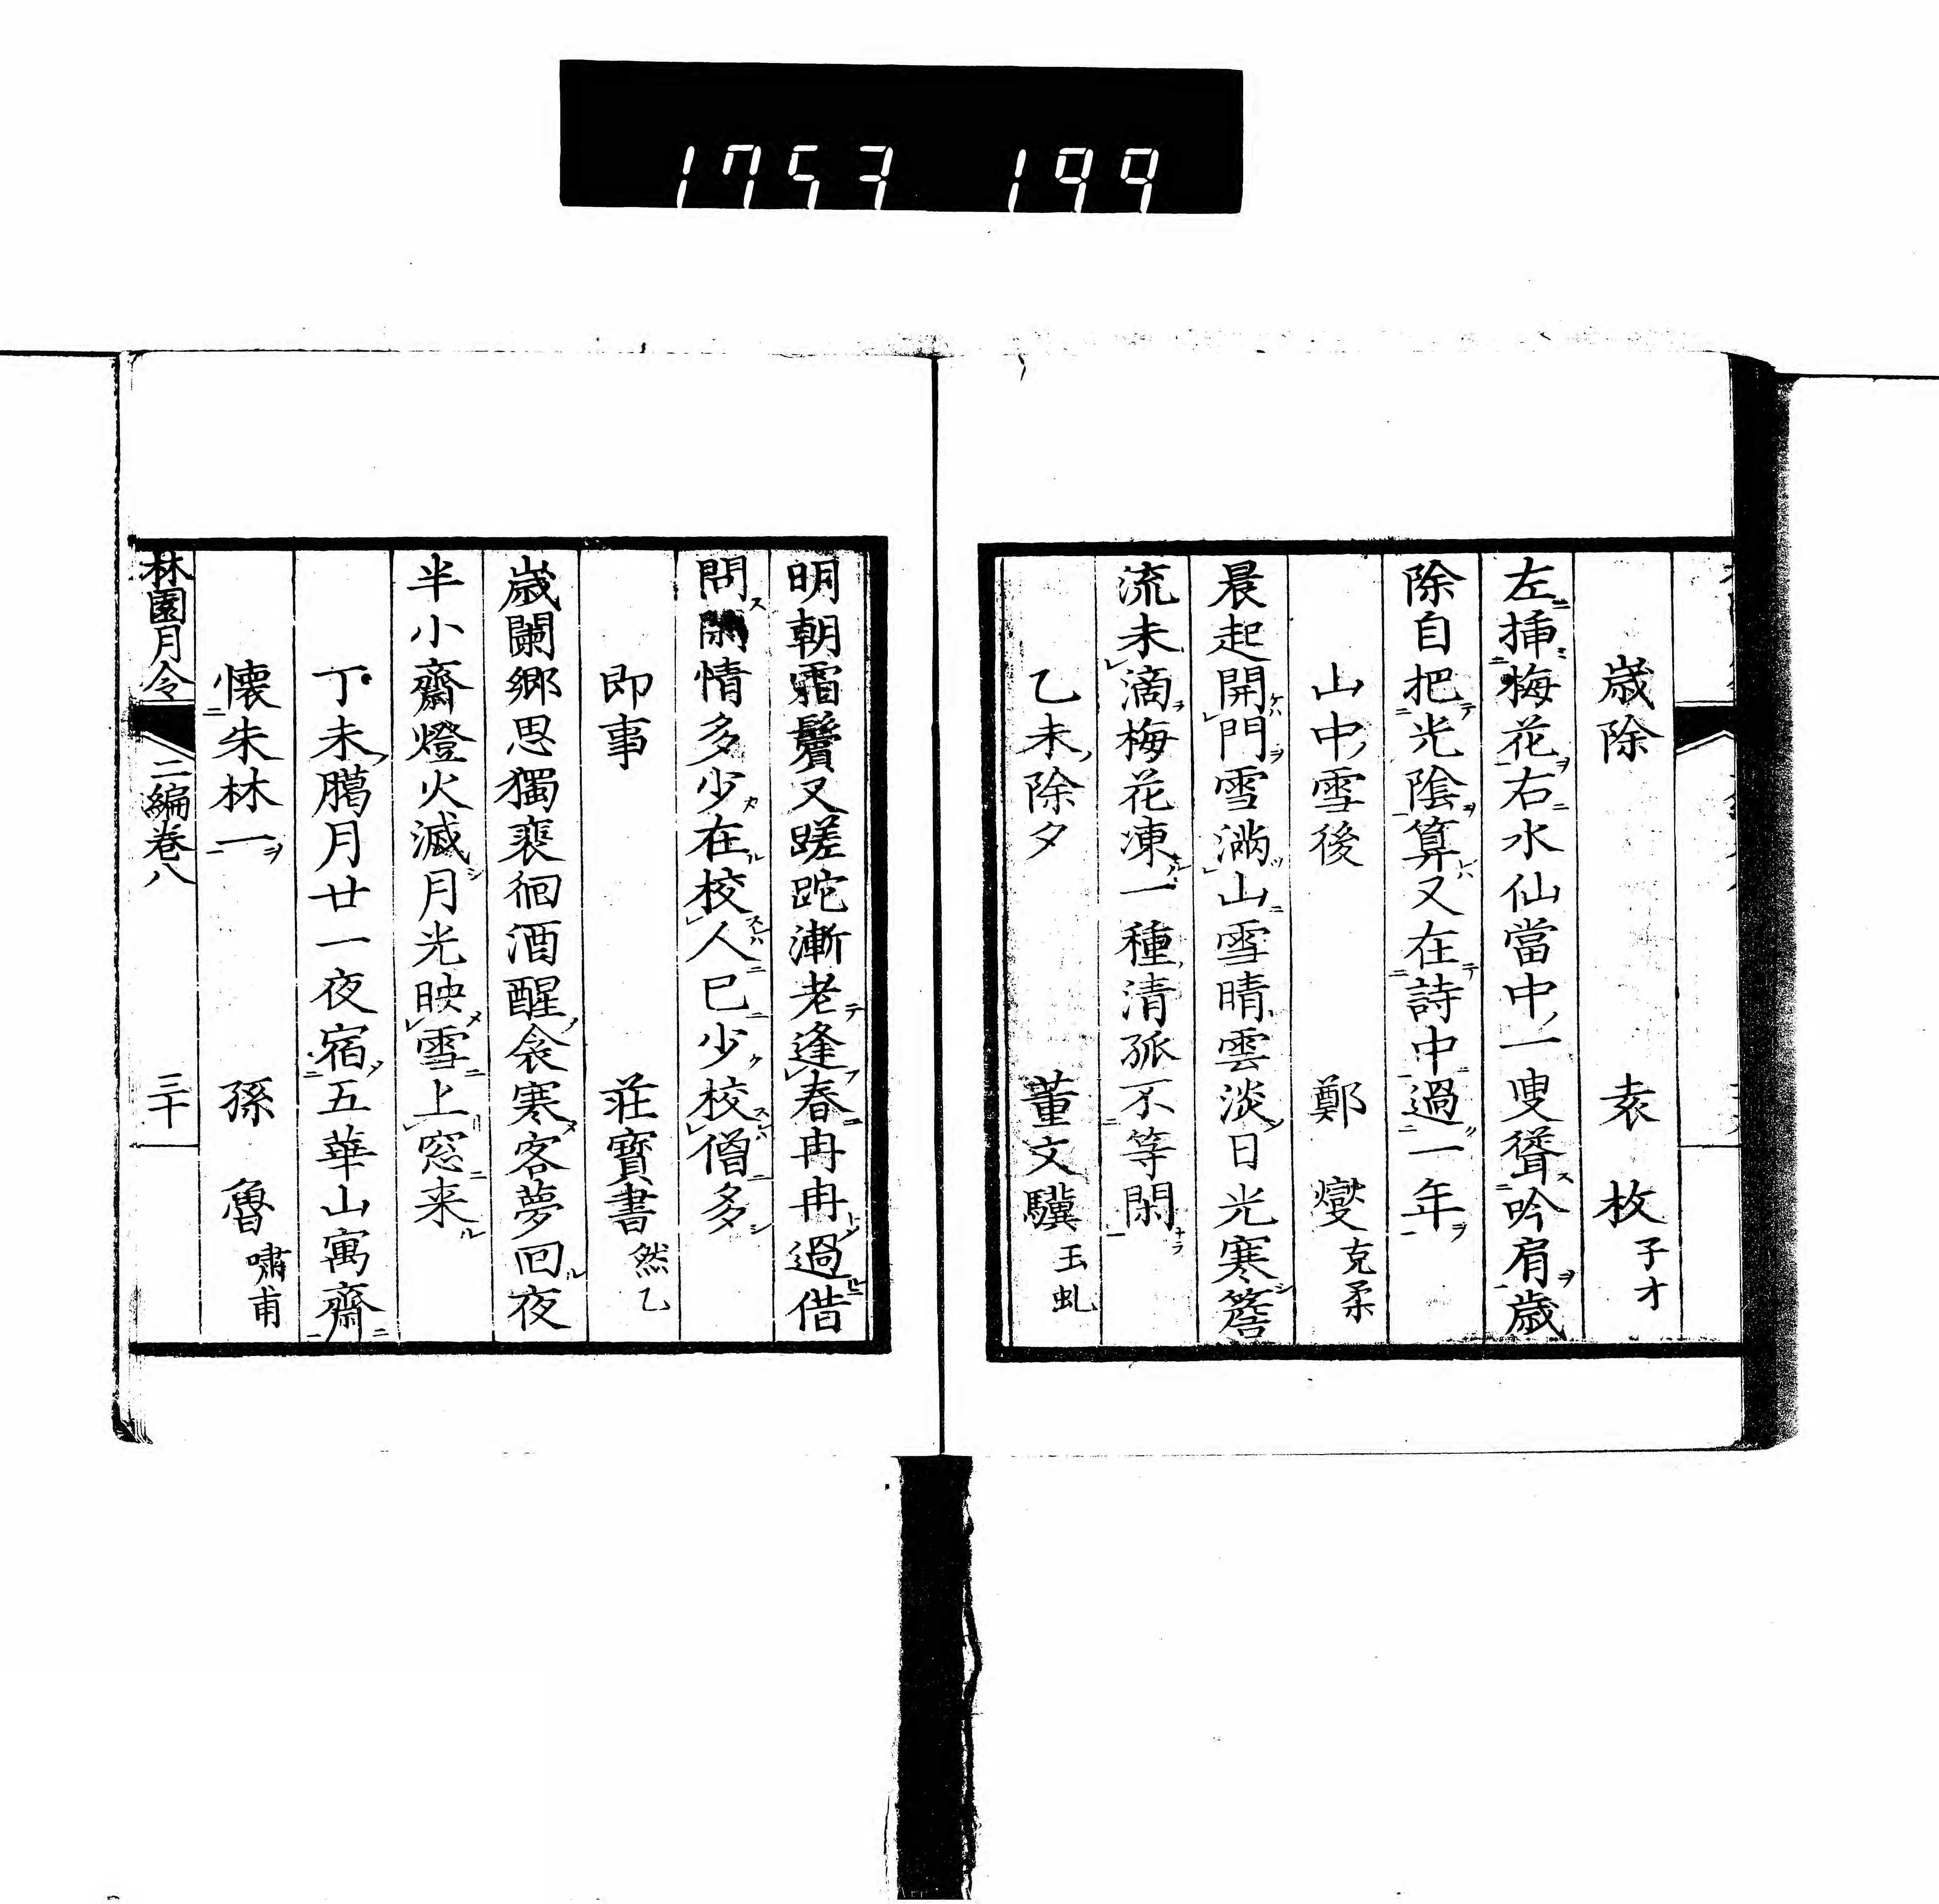 1753 199
歳除　袁枚子才
左挿梅花右水仙當中一叟聳吟肩歳
除自把光陰算又在詩中過一年
山中雪後　鄭燮克柔
晨起開門雪満山雪晴雲淡日光寒簷
流未滴梅花凍一種清孤不等閑
乙未除夕　董文驥玉虬
明朝霜鬢又蹉跎漸老逢春冉冉過借
問閑情多少在校人已少校僧多
即事　荘寳書然乙
歳闌郷思獨裵徊酒醒衾寒客夢回夜
半小齋燈火滅月光映雪上窓来
丁未臈月廿一夜宿五華山寓齋
懐朱林一　孫魯嘯甫
林園月令　二編巻八　三十